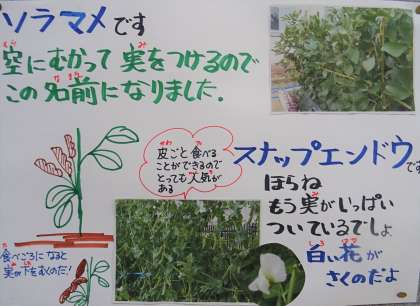 ソラマメです
空にむかって 実をつけるので
この名前になりました.
皮ごと食べる
ことができるので
とっても人気が
ある
スナップエンドウです
ほらね
もう実がいっぱい
ついているでしょ
白い花が
さくのだよ
食べごろになると
実が下をむくのだ!